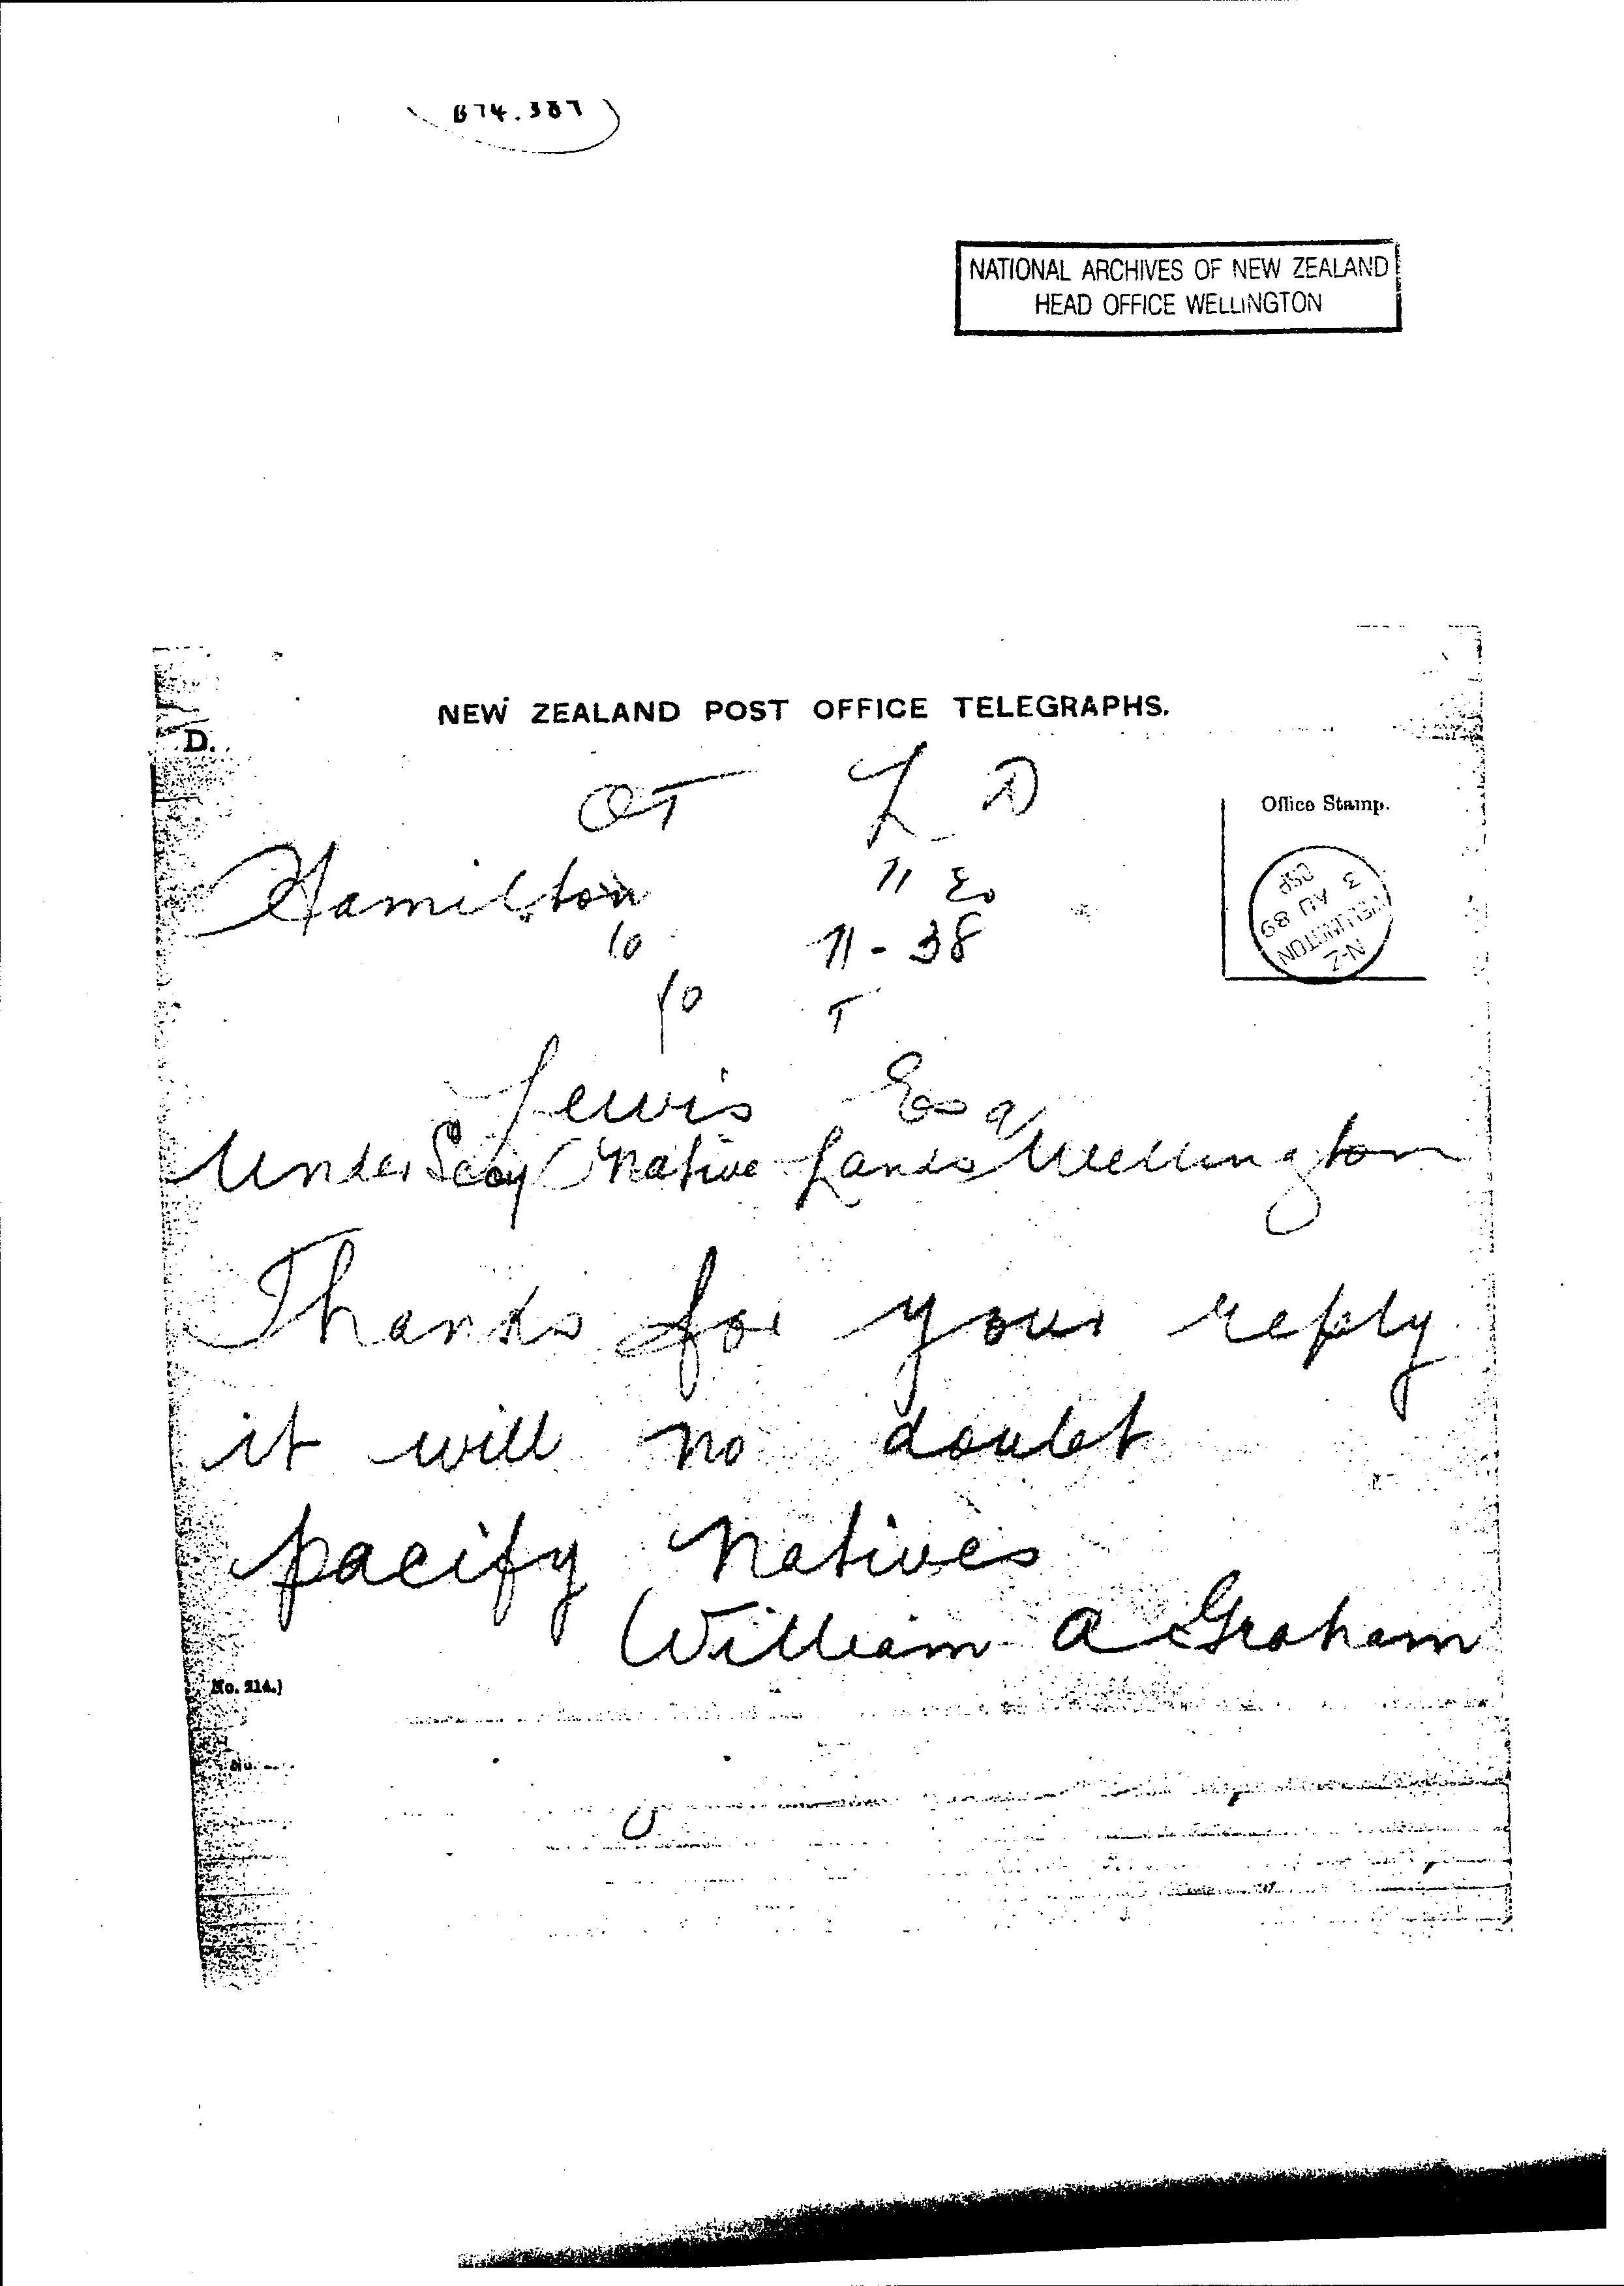 B74.387
NATIONAL ARCHIVES OF NEW ZEALAND
HEAD OFFICE WELLINGTON
NEW ZEALAND POST OFFICE TELEGRAPHS.
D.
OT L D
Office Stamp.
Hamilton 11 20
10 11-38
10 T
N-Z
WELLINGTON
3 AU 89
Lewis Esq
Under Secy Native Lands Wellington
Thanks for your reply
it will no doubt
pacify Natives
William A Graham
No. 21A.)
No.